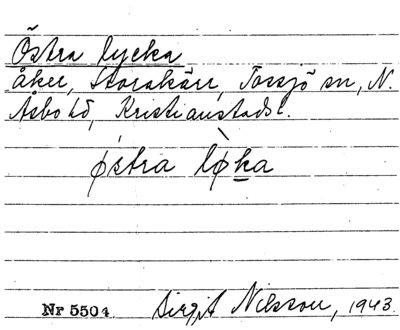 Östra lycka
Åker, Storskärr, Tossjö sn, N.
Åsbo hd, Kristianstads l.
østra løka
Nr 5504 Birgit Nilsson, 1943.